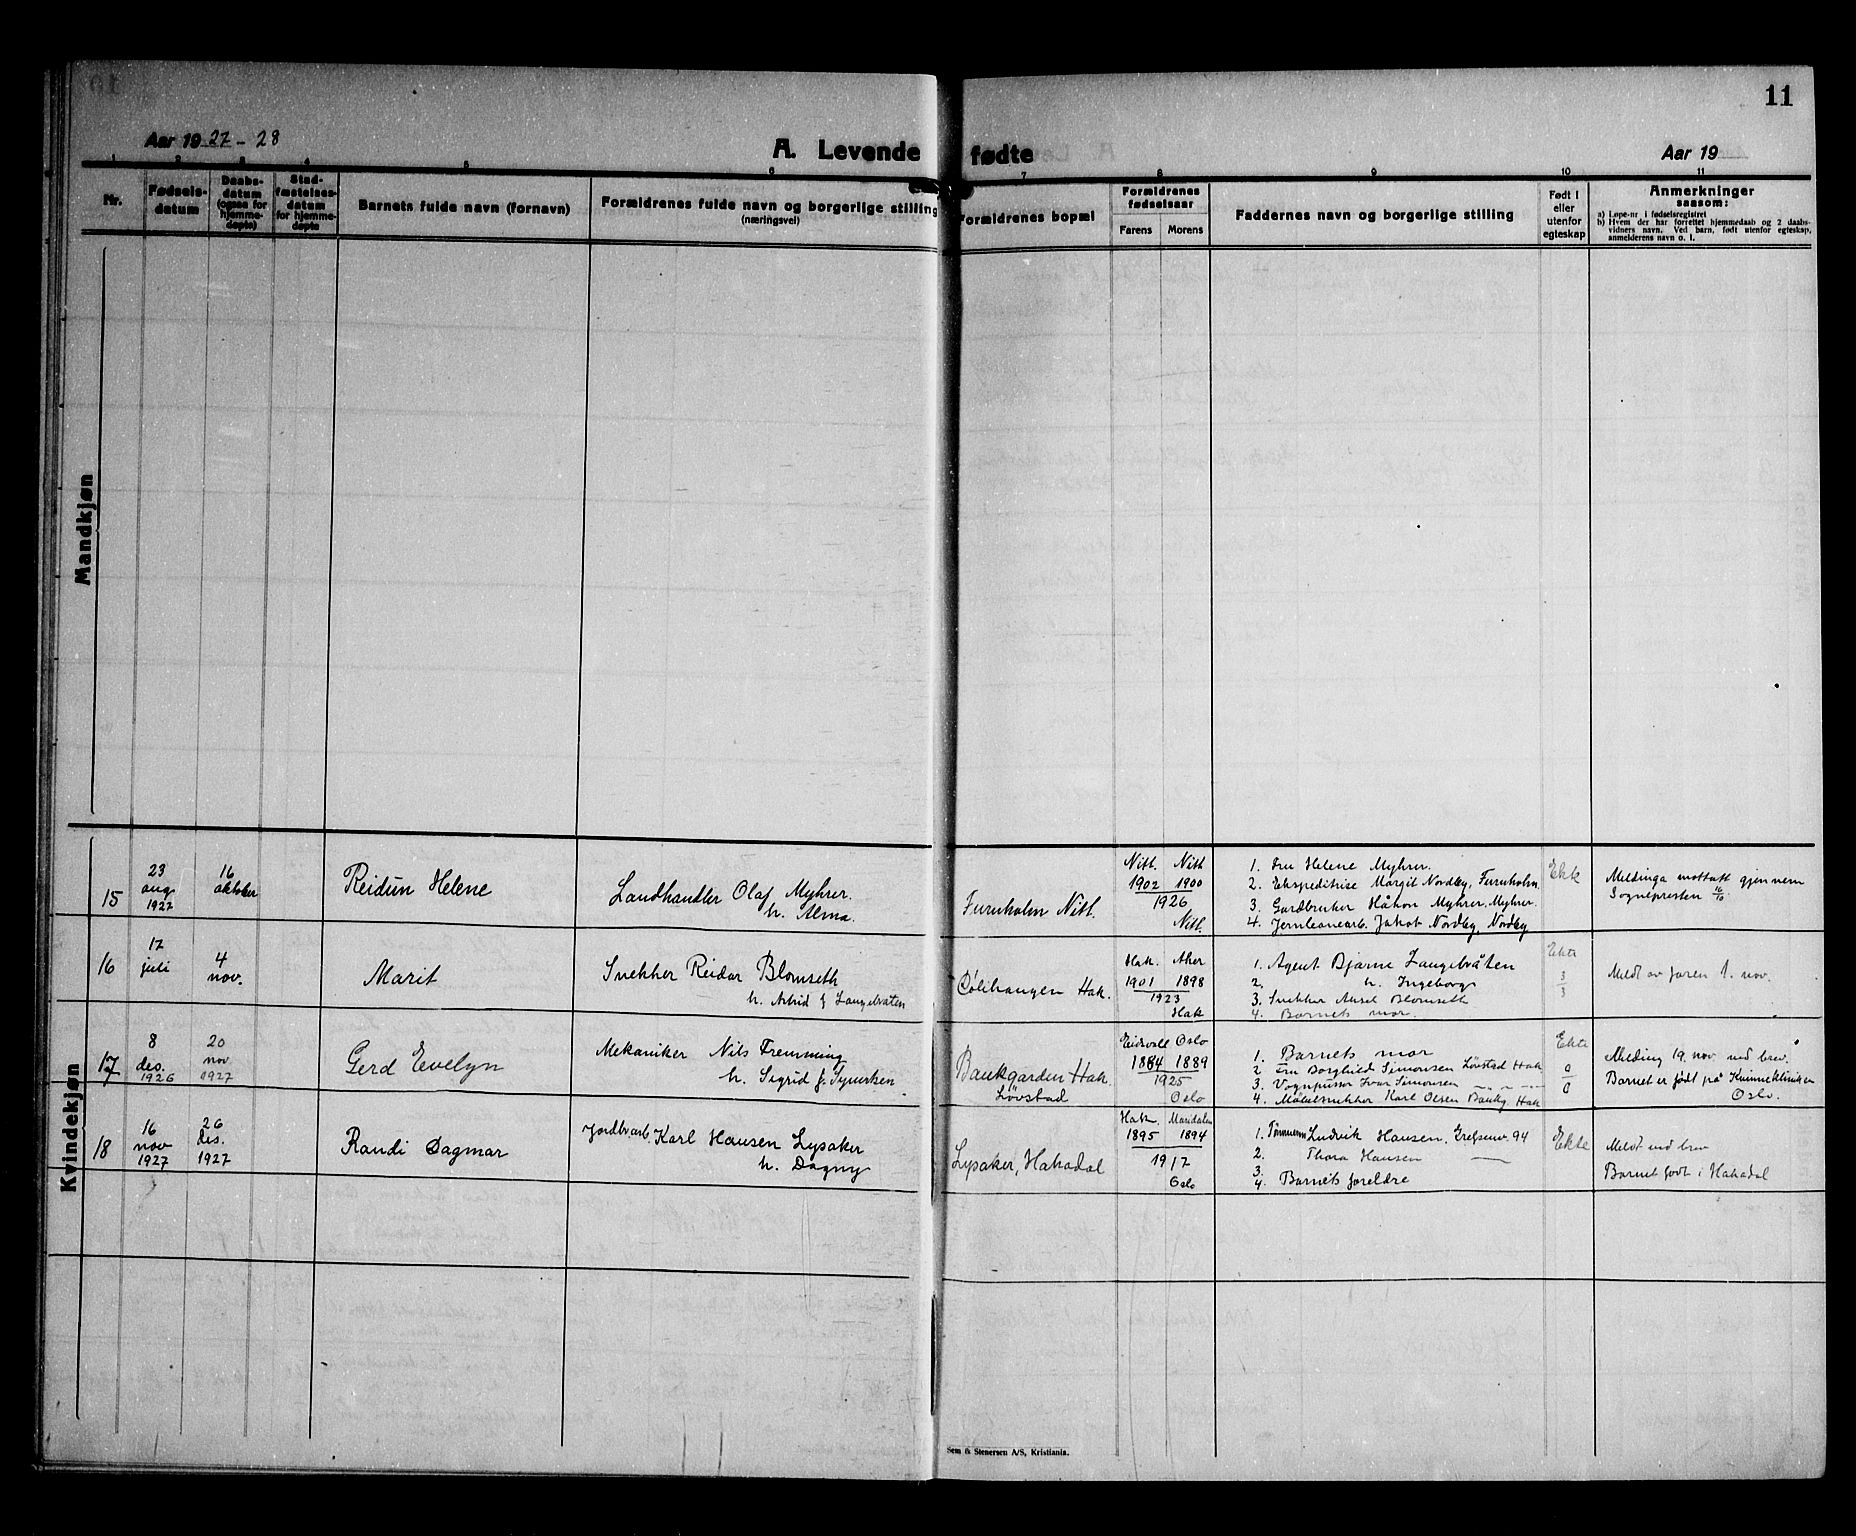 11
Aar 1927-28
A. Levende fødte
Aar 19
1 2 3 4 5 6 7 8 9 10 11
Nr.
Fødsels-
datum
Daabs-
datum
(ogsaa for
hjemme-
døpte)
Stad-
fæstelses-
datum
for hjemme-
døpte
Barnets fulde navn (fornavn)
Forældrenes fulde navn og borgerlige stilling
(næringsvei)
Forældrenes bopæl
Forældrenes
fødselsaar
Farens Morens
Faddernes navn og borgerlige stilling
Født i
eller
utenfor
egteskap
Anmerkninger
saasom:
a) Løpe-nr i fødselsregistret
b) Hvem der har forrettet hjemmedaab og 2 daabs-
vidners navn. Ved barn, født utenfor egteskap,
anmelderens navn o. l.
Mandkjøn
Kvindekjøn
15
23
aug
1927
16
oktober
Reidun Helene
Landhandler Olaf Myhrer.
h. Alma.
Furuholm Nitt.
Nitt. Nitt
1902 1900
1926
Nitt.
1. Fru Helene Myhrer.
2. Ekspeditrise Margit Nordby, Furuholm.
3. Gardbruker Håkon Myhrer, Myhrer.
4. Jernbanearb. Jakob Nordby, Nordby
Ekte
Meldinga mottatt gjennem
Sognepresten 16/10
16
17
juli
4
nov.
Marit
Snekker Reidar Blomseth
h. Astrid f. Langebråten
Hak.
Hak. Aker
1901 1898
1923
Hak
1. Agent Bjarne Langebråten
2. h. Ingeborg
3. Snekker Aksel Blomseth
4. Barnets mor.
Ekte
3
3
Meldt av faren 1. nov.
17
8
des.
1926
20
nov
1927
Gerd Evelyn
Mekaniker Nils Fremming
h. Sigrid f.
Baukgarden Hak.
Løvstad
Eidsvoll Oslo
1884 1889
1925
Oslo
1. Barnets mor
2 Fru Borghild Simonsen Løvstad Hak
3. Vognpusser Ivar Simonsen — " — " —
4. Møbelsnekker Karl Olsen Baukg. Hak
Ekte
0
0
Melding 19. nov. ved brev.
Barnet er født på Kvinneklinikken
Oslo.
18
16
nov
1927
26
des.
1927
Randi Dagmar
Jordbr.arb. Karl Hansen Lysaker
h. Dagny
Lysaker, Hakadal
Hak Maridalen
1895 1894
1917
Oslo
1. Tømmerm Ludvik Hansen, Grefsenv. 94
2. Thora Hansen —
3.
4. Barnets foreldre
Ekte
Meldt ved brev
Barnet født i Hakadal
Sem & Stenersen A/S, Kristiania.